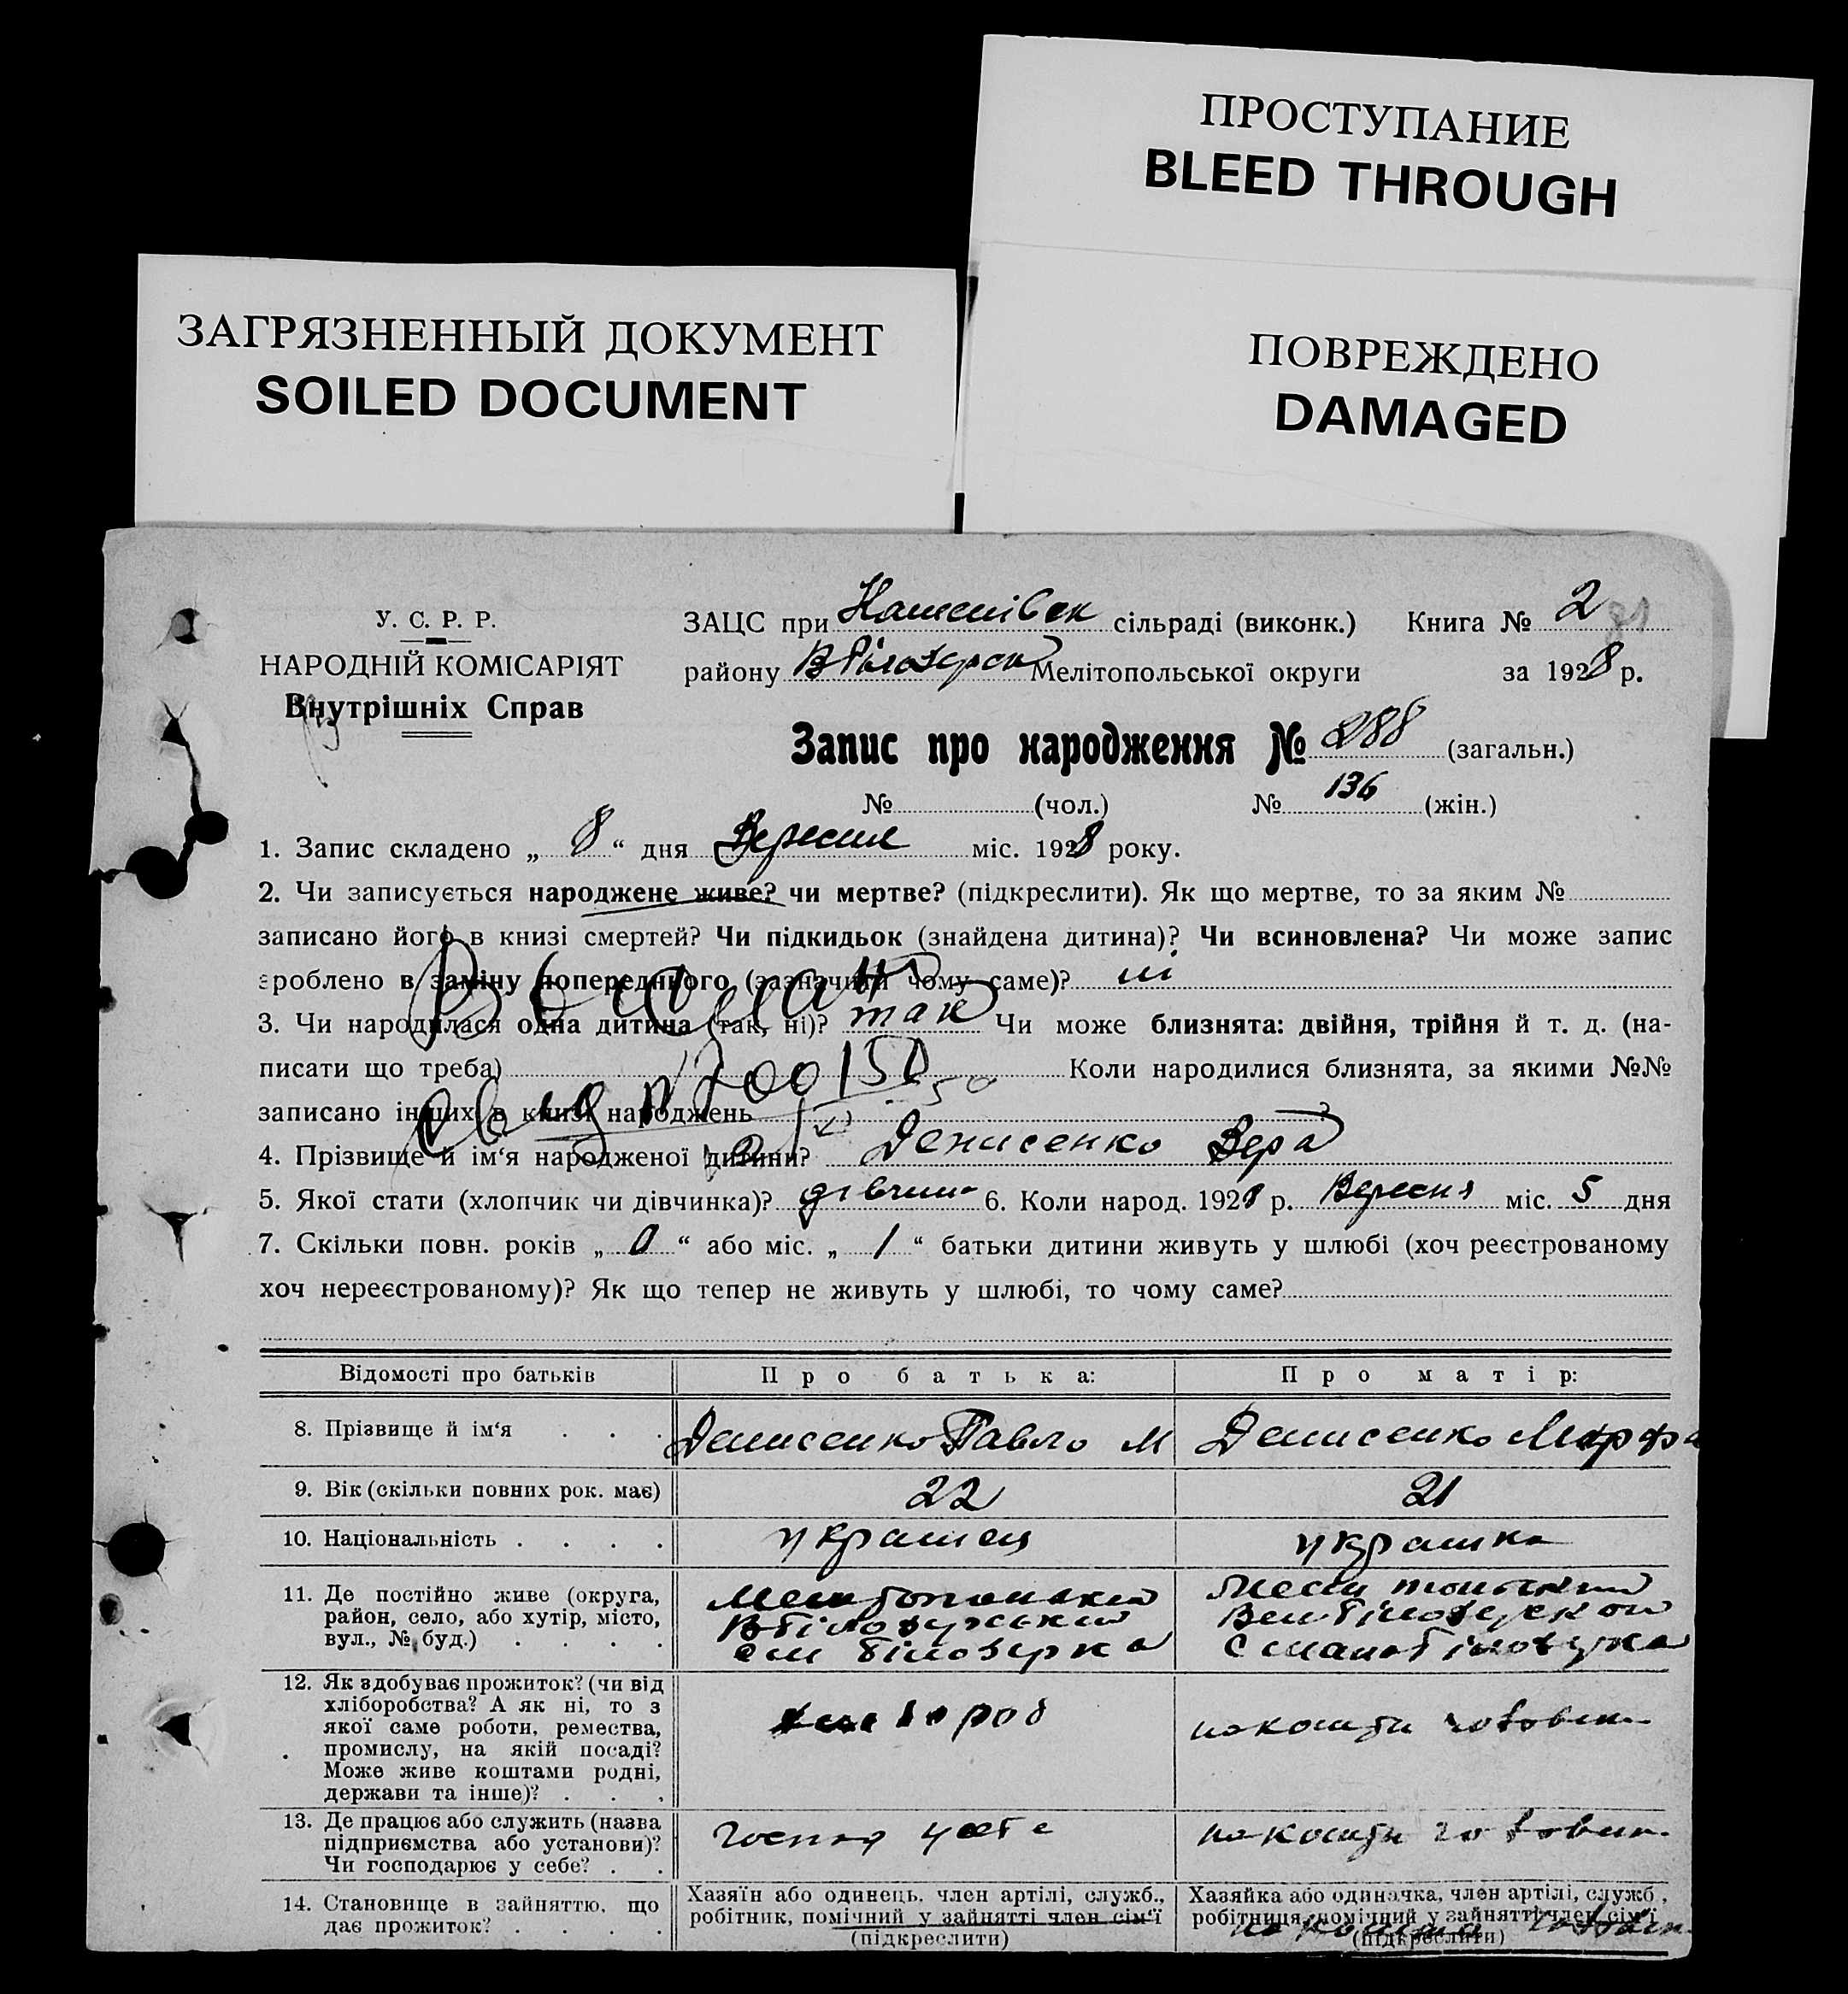 ПРОСТУПАНИЕ
BLEED THROUGH
ЗАГРЯЗНЕННЫЙ ДОКУМЕНТ
SOILED DOCUMENT
ПОВРЕЖДЕНО
DAMAGED
У. С. Р. Р.
НАРОДНІЙ КОМІСАРІЯТ
Внутрішніх Справ
ЗАЦС при сільраді (виконк.) Книга № 2
району Мелітопольської округи за 1928 р.
Запис про народження № 288 (загальн.)
№ (чол.) № 136 (жін.)
1. Запис складено „ 8 “ дня Вересня міс. 1928 року.
2. Чи записується народжене живе? чи мертве? (підкреслити). Як що мертве, то за яким №
записано його в книзі смертей? Чи підкидьок (знайдена дитина)? Чи всиновлена? Чи може запис
зроблено в заміну попереднього (зазначити чому саме)? ні
3. Чи народилася одна дитина (так, ні)? так Чи може близнята: двійня, трійня й т. д. (на-
писати що треба) Коли народилися близнята, за якими №№
записано інших в книзі народжень
4. Прізвище й ім‘я народженої дитини? Денисенко Вера
5. Якої стати (хлопчик чи дівчинка)? дівчина 6. Коли народ. 1928 р. Вересня міс. 5 дня
7. Скільки повн. років „ 0 “ або міс. „ 1 “ батьки дитини живуть у шлюбі (хоч реєстрованому
хоч нереєстрованому)? Як що тепер не живуть у шлюбі, то чому саме?
Відомості про батьків Про батька: Про матір:
8. Прізвище й ім‘я Денисенко Павло М Денисенко Марфа
9. Вік (скільки повних рок. має) 22 21
10. Національність украинец украинка
11. Де постійно живе (округа,
район, село, або хутір, місто,
вул., № буд.)
12. Як здобуває прожиток? (чи від
хліборобства? А як ні, то з
якої саме роботи, ремества,
промислу, на якій посаді?
Може живе коштами родні,
держави та інше)?
13. Де працює або служить (назва
підприємства або установи)?
Чи господарює у себе?
14. Становище в зайняттю, що
дає прожиток?
Хазяїн або одинець, член артілі, служб.,
робітник, помічний у зайнятті член сім‘ї
(підкреслити)
Хазяйка або одиначка, член артілі, служб.,
робітниця, помічний у зайнятті член сім‘ї
(підкреслити)